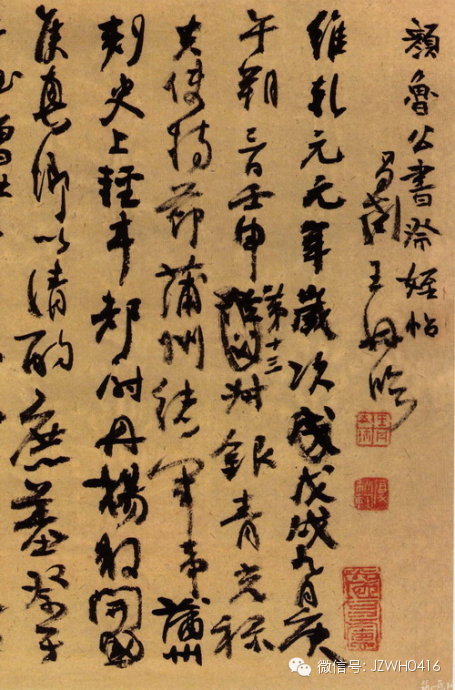 顏魯公書祭姪帖
王丹
維乾元元年歲次戊戌九月庚
午朔三日壬申第十三叔銀青光祿
夫使持節蒲州諸軍事蒲州
刺史上輕車都尉丹楊縣開國
侯真卿以清酌庶羞祭于
微信号: JZWH0416